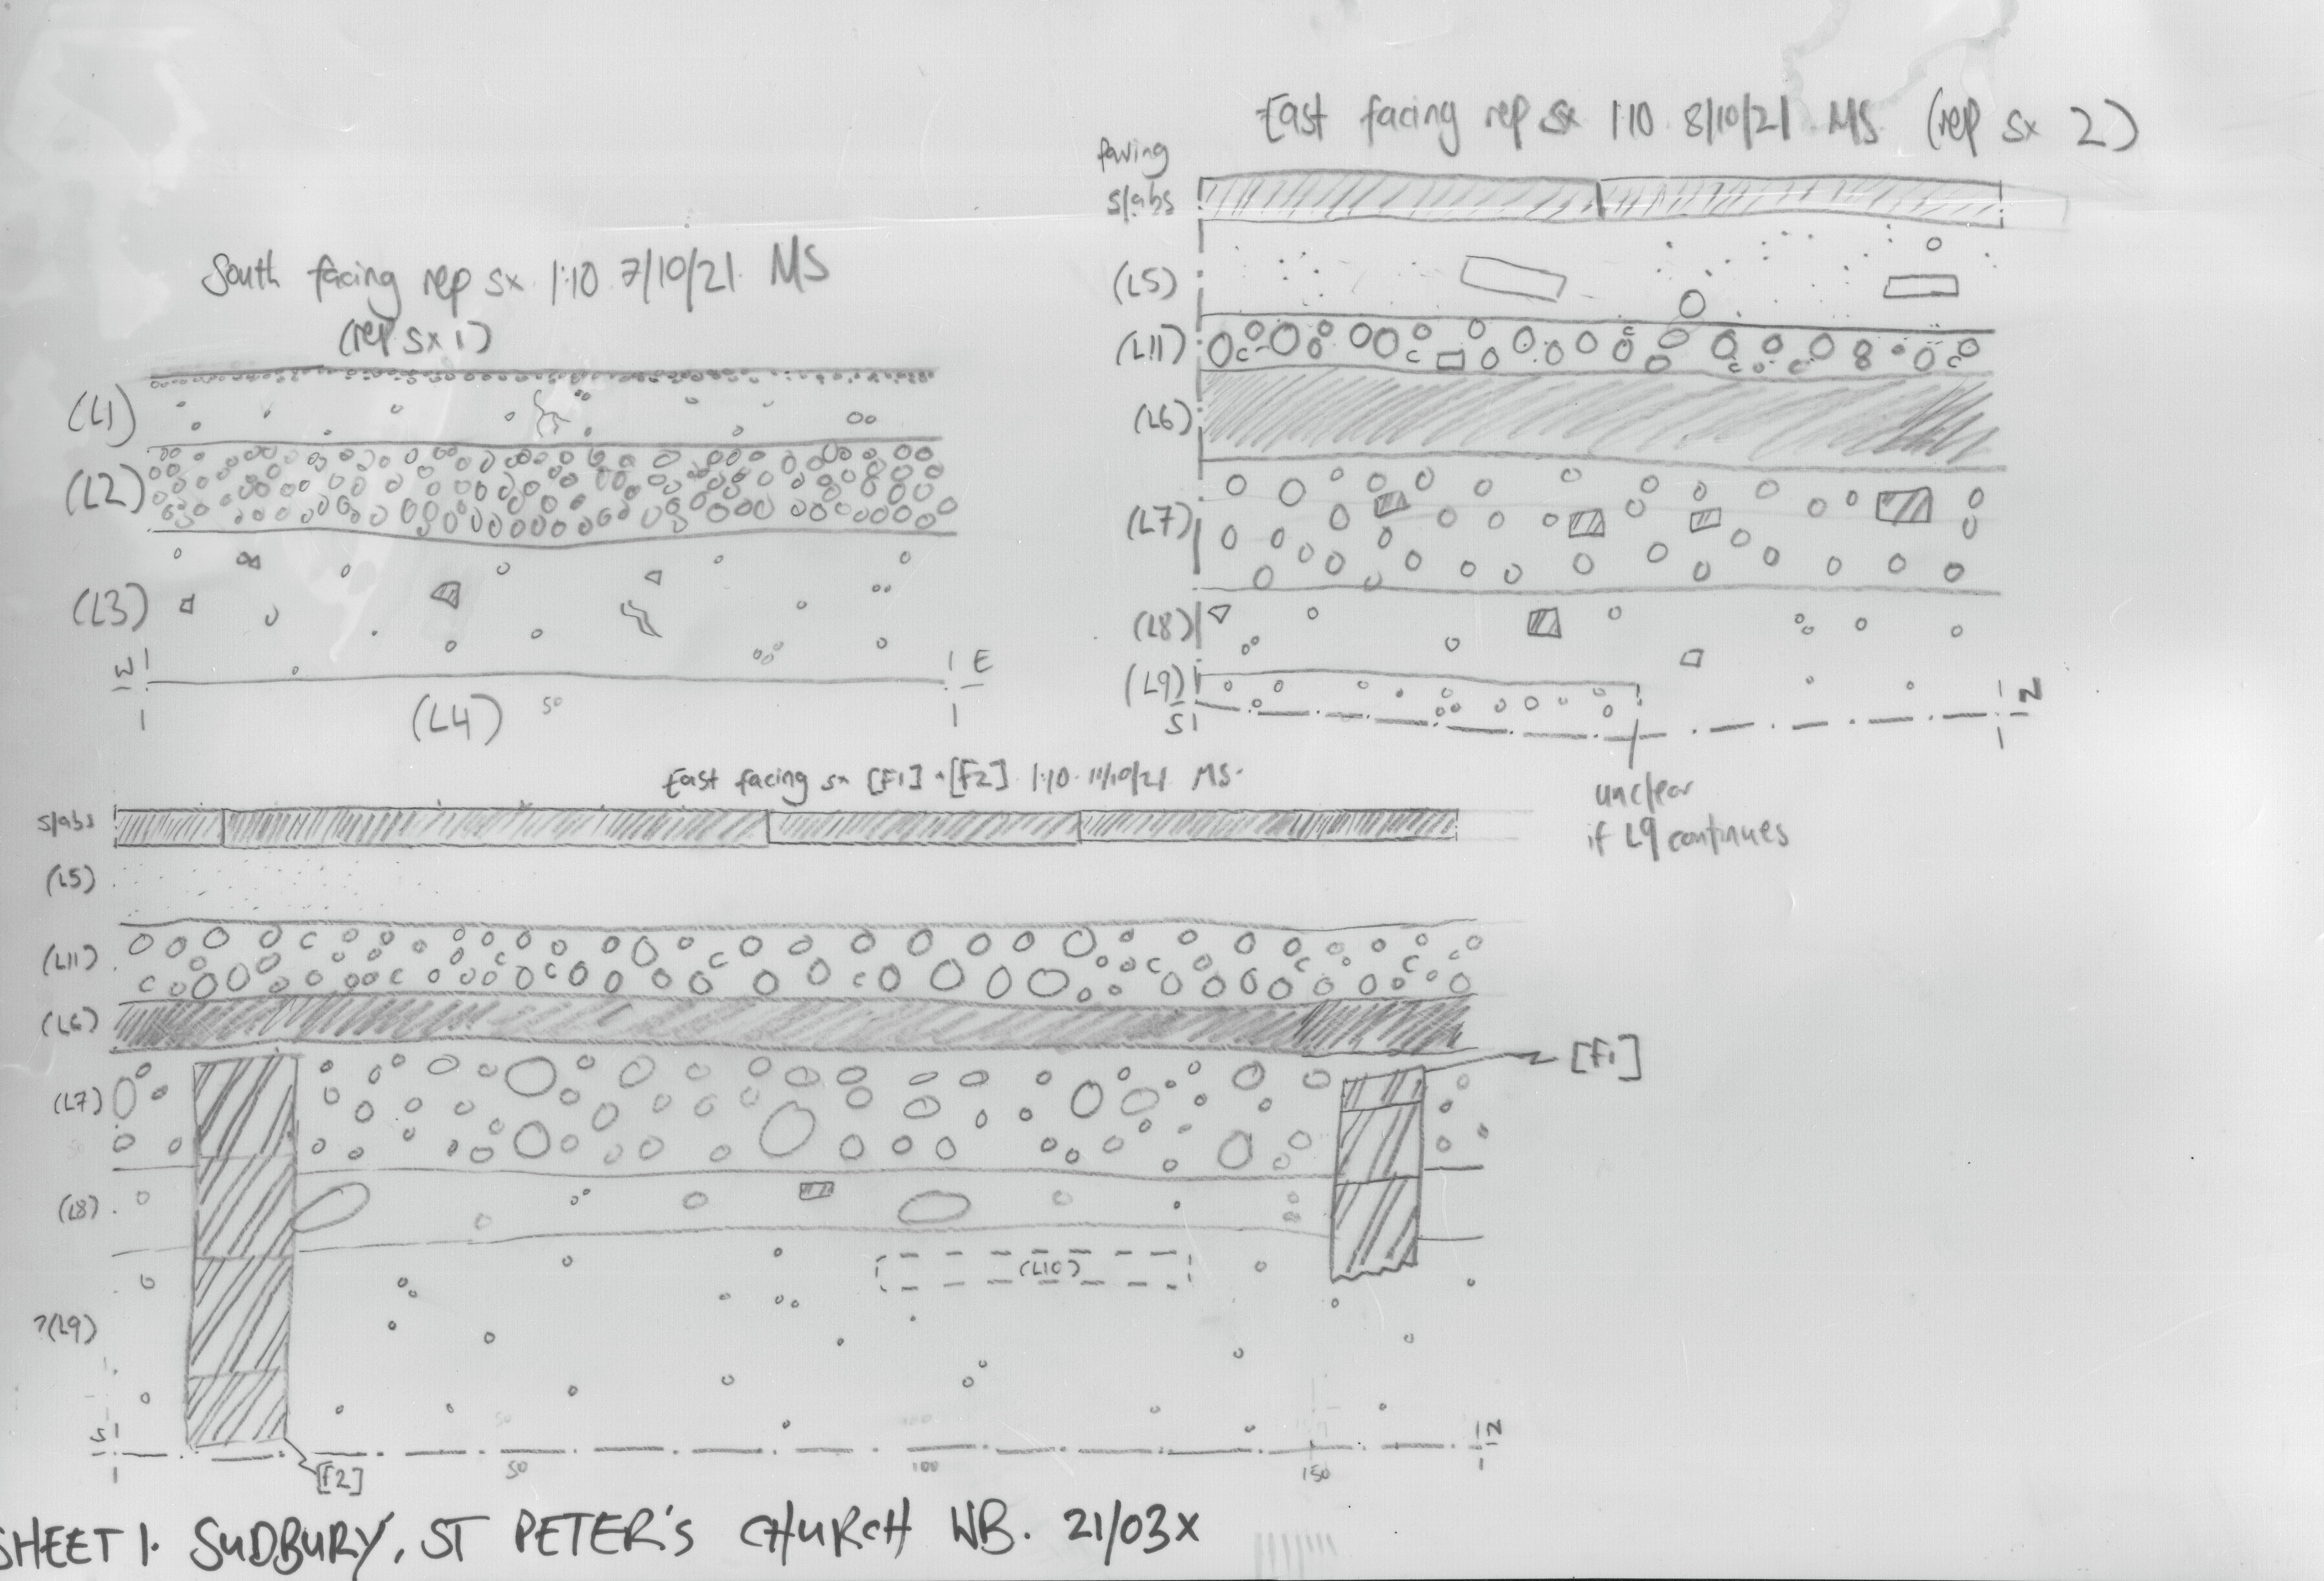 East facing rep sx 1:10 8/10/21 MS (rep sx 2)
paving
slabs
(L5)
(L11)
(L6)
(L7)
(L8)
(L9)
S
N
unclear
if L9 continues
South facing rep sx 1:10 7/10/21 MS
(rep sx 1)
(L1)
(L2)
(L3)
W
E
(L4)
50
East facing sx [F1] + [F2] 1:10 11/10/21 MS
slabs
(L5)
(L11)
(L6)
[F1]
(L7)
(L8)
(L10)
?(L9)
S
N
[F2]
50
100
150
SHEET 1. SUDBURY, ST PETER'S CHURCH WB. 21/03X